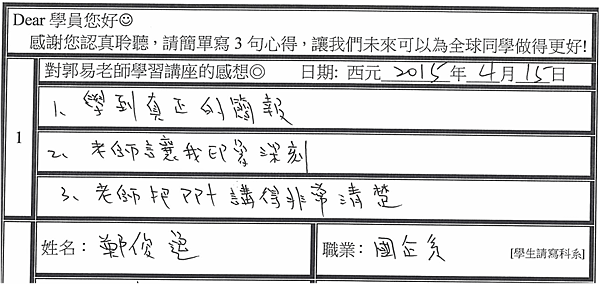 Dear 學員您好☺
感謝您認真聆聽，請簡單寫 3 句心得，讓我們未來可以為全球同學做得更好!
對郭易老師學習講座的感想◎ 日期: 西元 2015 年 4 月 15 日
1
1、學到真正的簡報
2、老師讓我印象深刻
3、老師把PPT講得非常清楚
姓名： 鄭俊 職業： 國企系 [學生請寫科系]